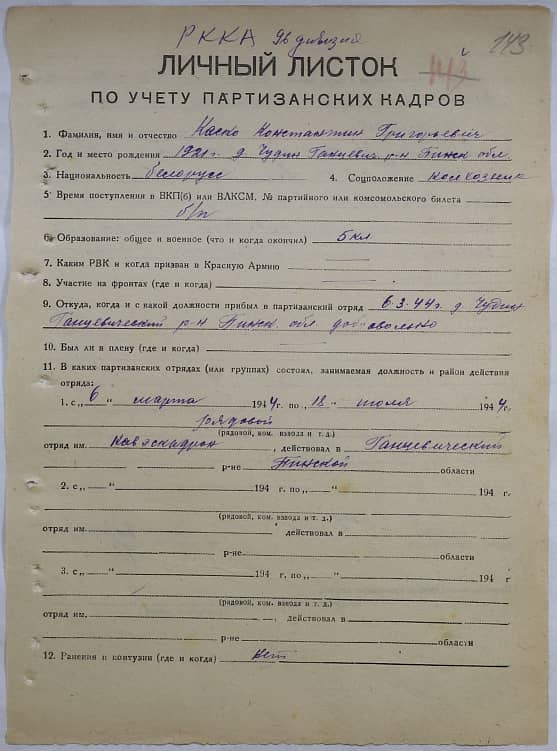 РККА 96 дивизия
143
ЛИЧНЫЙ ЛИСТОК
143
ПО УЧЕТУ ПАРТИЗАНСКИХ КАДРОВ
1. Фамилия, имя и отчество Каско Константин Григорьевич
2. Год и место рождения 1921 г. д. Чудин Ганцевич. р-н Пинск. обл.
3. Национальность белорусс 4. Соцположение колхозник
5. Время поступления в ВКП(б) или ВЛКСМ, № партийного или комсомольского билета
б/п
6. Образование: общее и военное (что и когда окончил) 5 кл
7. Каким РВК и когда призван в Красную Армию
8. Участие на фронтах (где и когда)
9. Откуда, когда и с какой должности прибыл в партизанский отряд 6.3.44 г. д. Чудин
Ганцевический р-н Пинск. обл. добровольно
10. Был ли в плену (где и когда)
11. В каких партизанских отрядах (или группах) состоял, занимаемая должность и район действия
отряда:
1. с „6“ марта 1944 г. по „18“ июля 1944 г.
рядовой
(рядовой, ком. взвода и т. д.)
отряд им. Кавэскадрон, действовал в Ганцевический
р-не Пинской области
2. с „ “ 194 г. по „ “ 194 г.
(рядовой, ком. взвода и т. д.)
отряд им. действовал в
р-не области
3. с „ “ 194 г. по „ “ 194 г
(рядовой, ком. взвода и т. д.)
отряд им. , действовал в
р-не области
12. Ранения и контузии (где и когда) нет